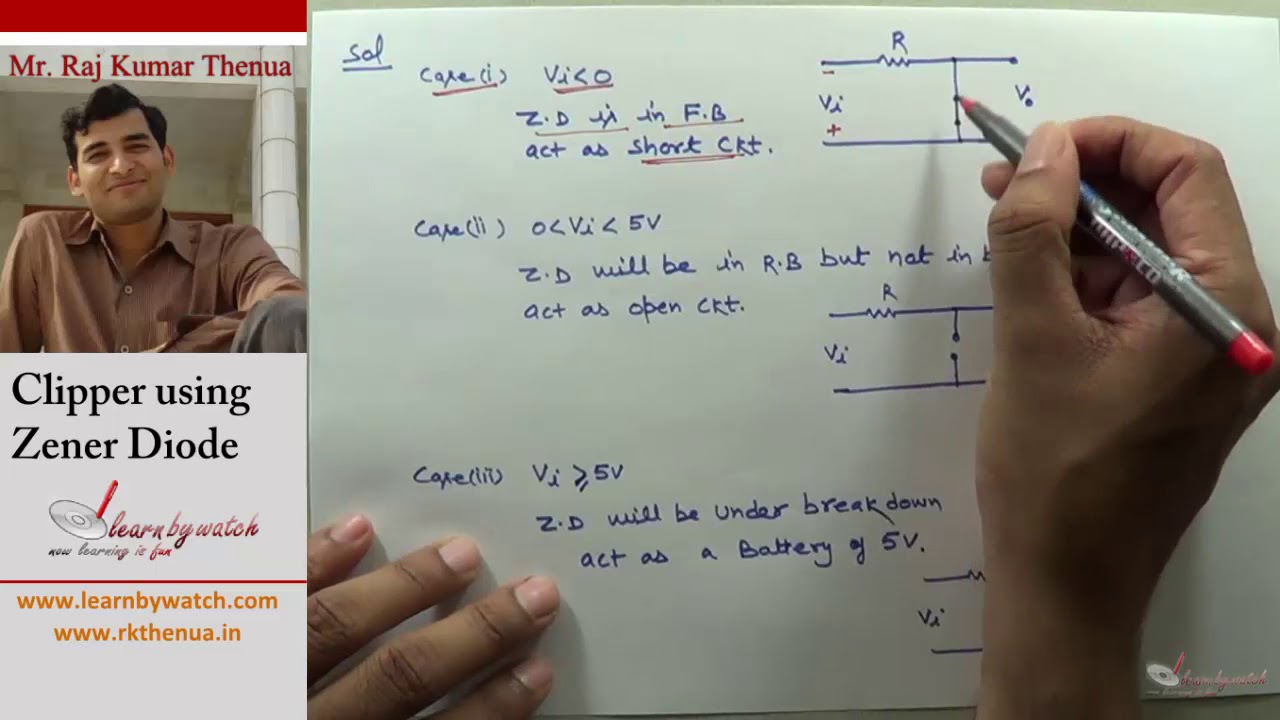 Mr. Raj Kumar Thenua
Clipper using
Zener Diode
learnbywatch
now learning is fun
www.learnbywatch.com
www.rkthenua.in
Sol
Case(i) Vi<0
Z.D is in F.B
act as short Ckt.
R
-
Vi
+
Vo
Case(ii) 0<Vi<5V
Z.D will be in R.B but not in b
act as open Ckt.
R
Vi
Case(iii) Vi ⩾ 5V
Z.D will be under breakdown
act as a Battery of 5V.
Vi
learnbywatch